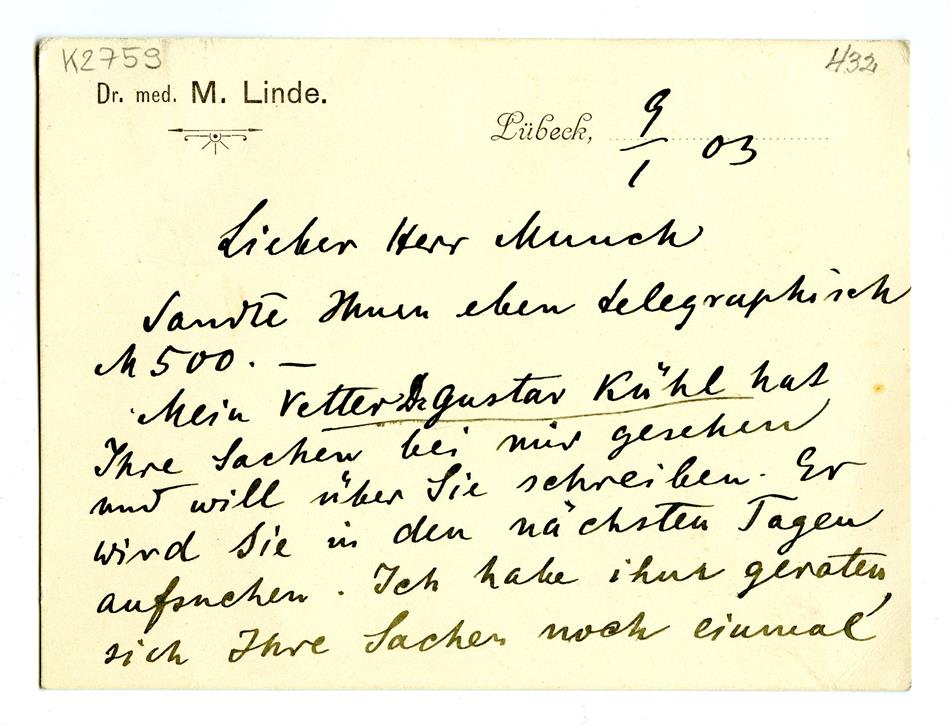 K2759
432
Dr. med. M. Linde.
Lübeck, 9/1 03
Lieber Herr Munch
Sandte Ihnen eben telegraphisch
M 500. —
Mein Vetter Dr Gustav Kühl hat
Ihre Sachen bei mir gesehen
und will über Sie schreiben. Er
wird Sie in den nächsten Tagen
aufsuchen. Ich habe ihm geraten,
sich Ihre Sachen noch einmal